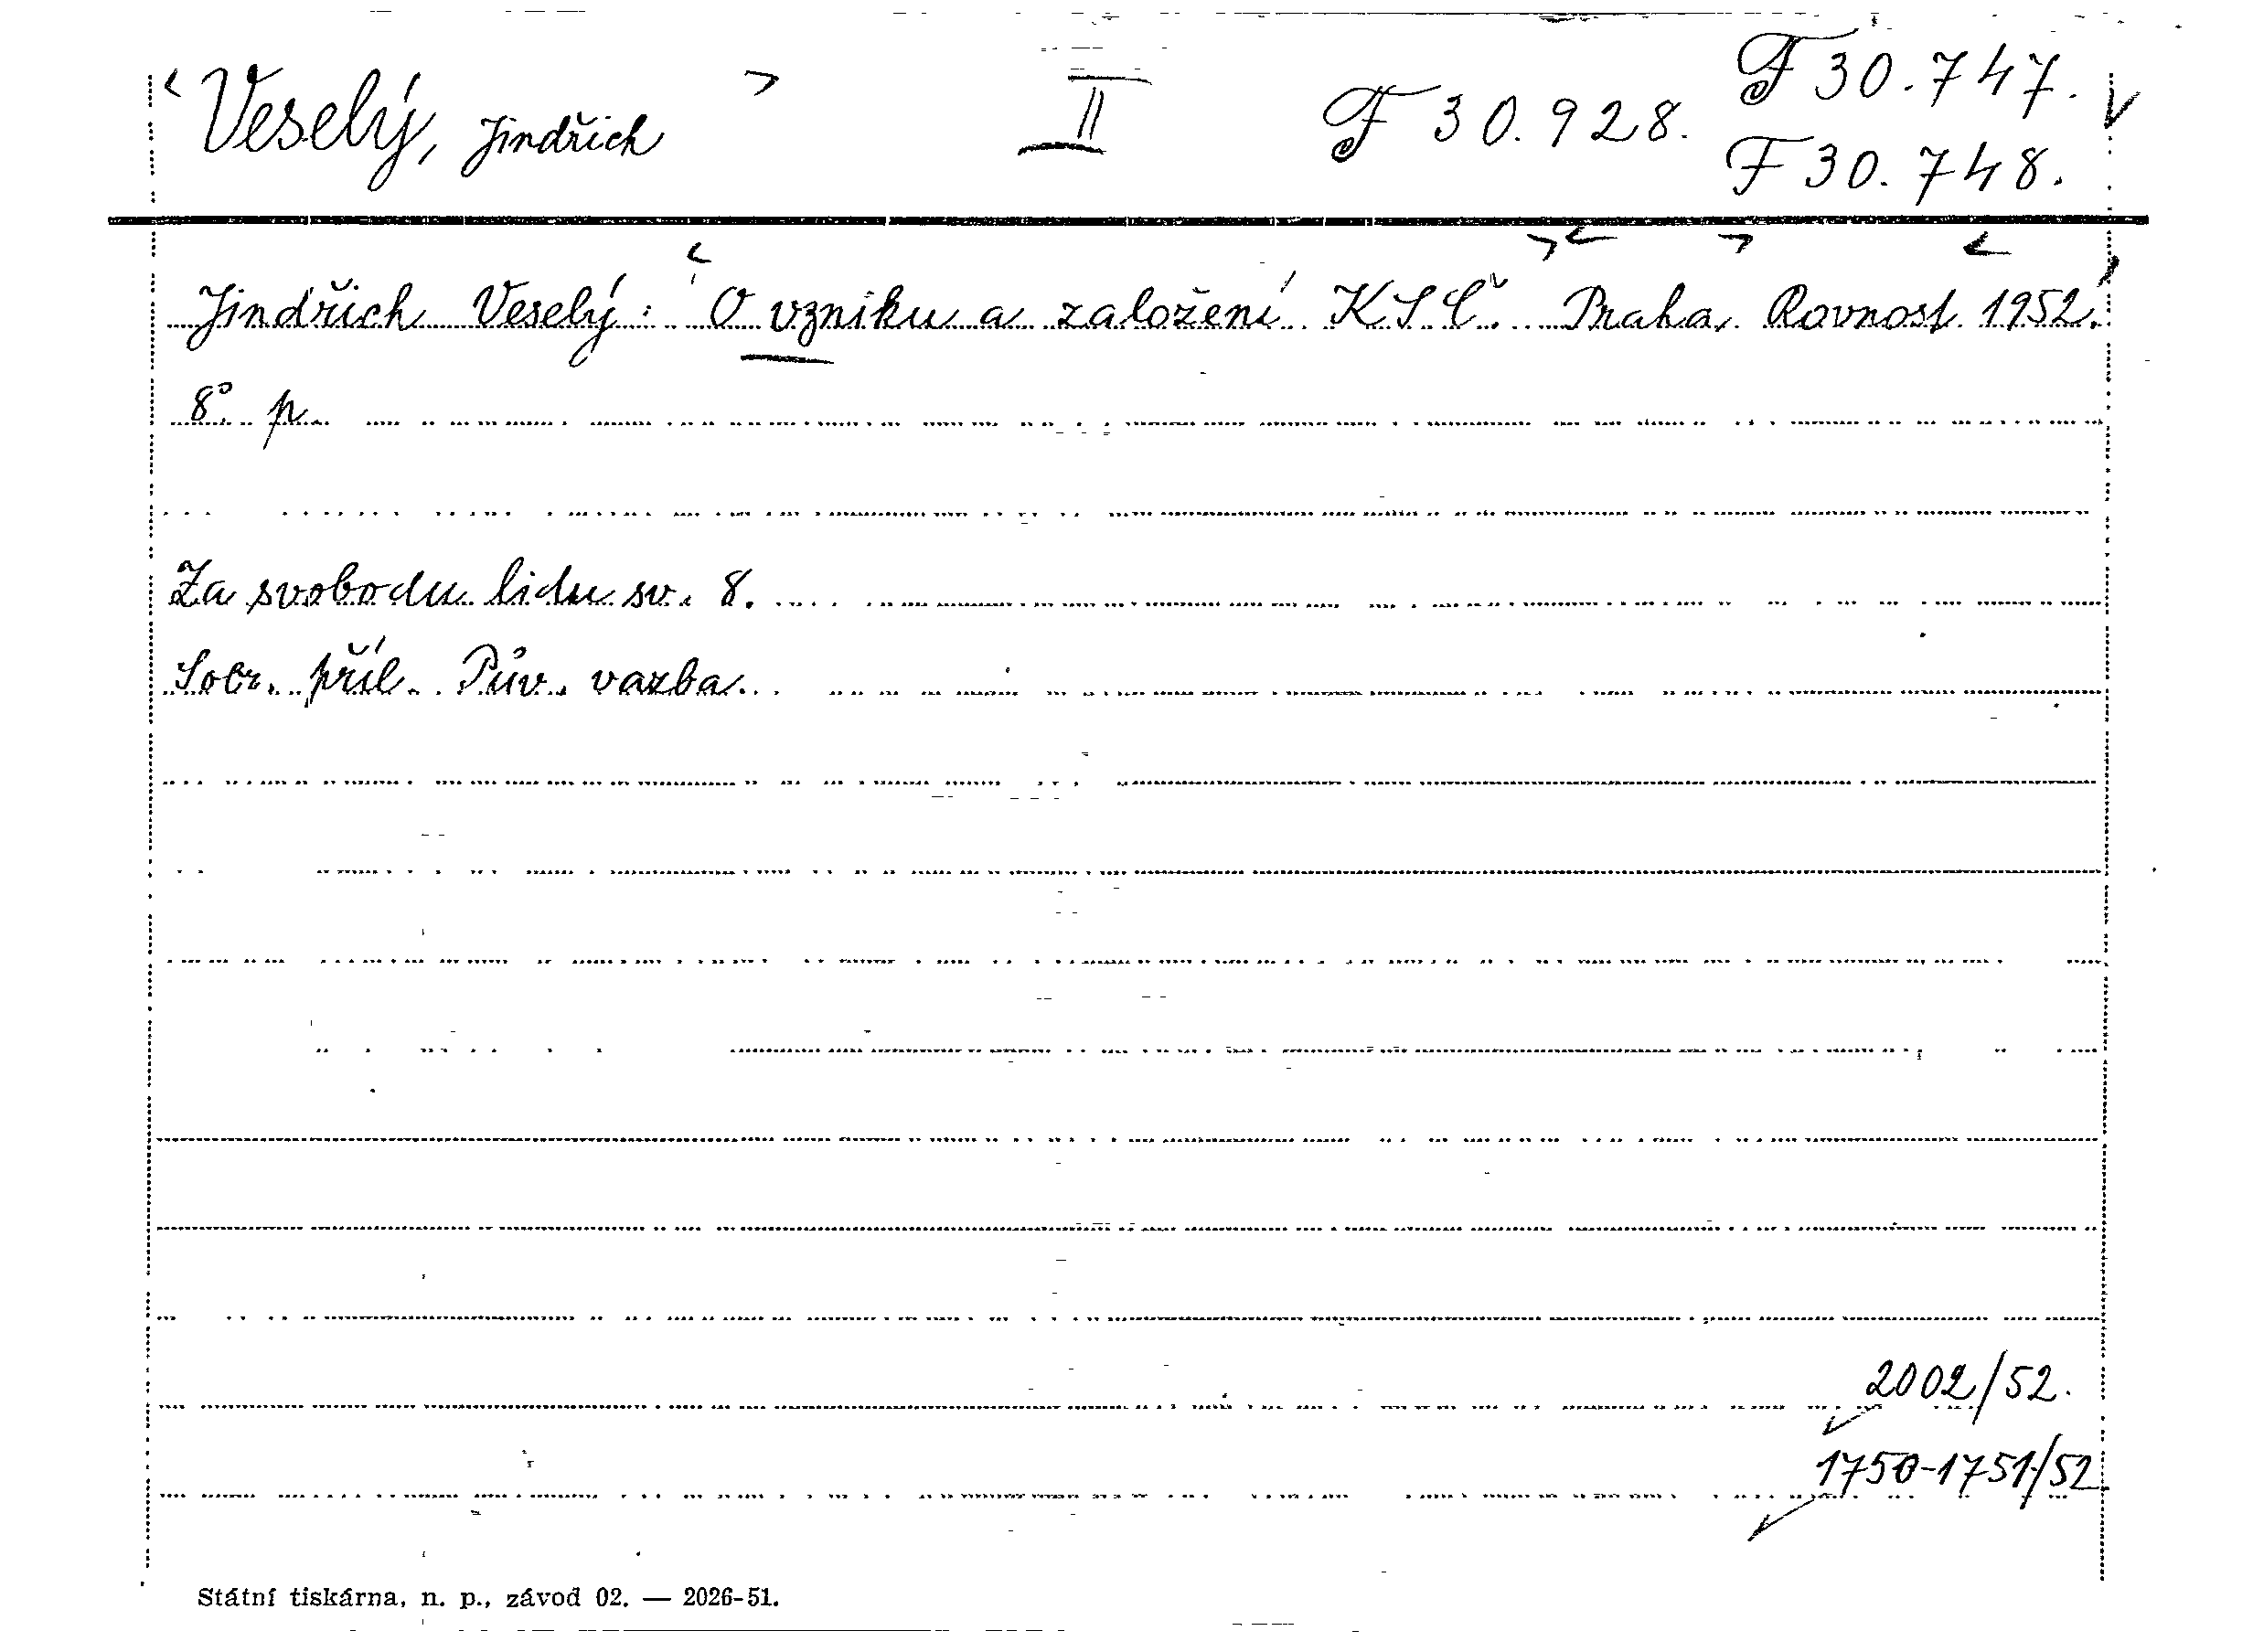 Veselý, Jindřich II F 30.928. F 30.747.
F 30.748.
Jindřich Veselý: O vzniku a založení KSČ. Praha, Rovnost 1952.
8° p.
Za svobodu lidu sv. 8.
Sobr. příl. Pův. vazba.
2002/52.
1750-1751/52
Státní tiskárna, n. p., závod 02. — 2026-51.